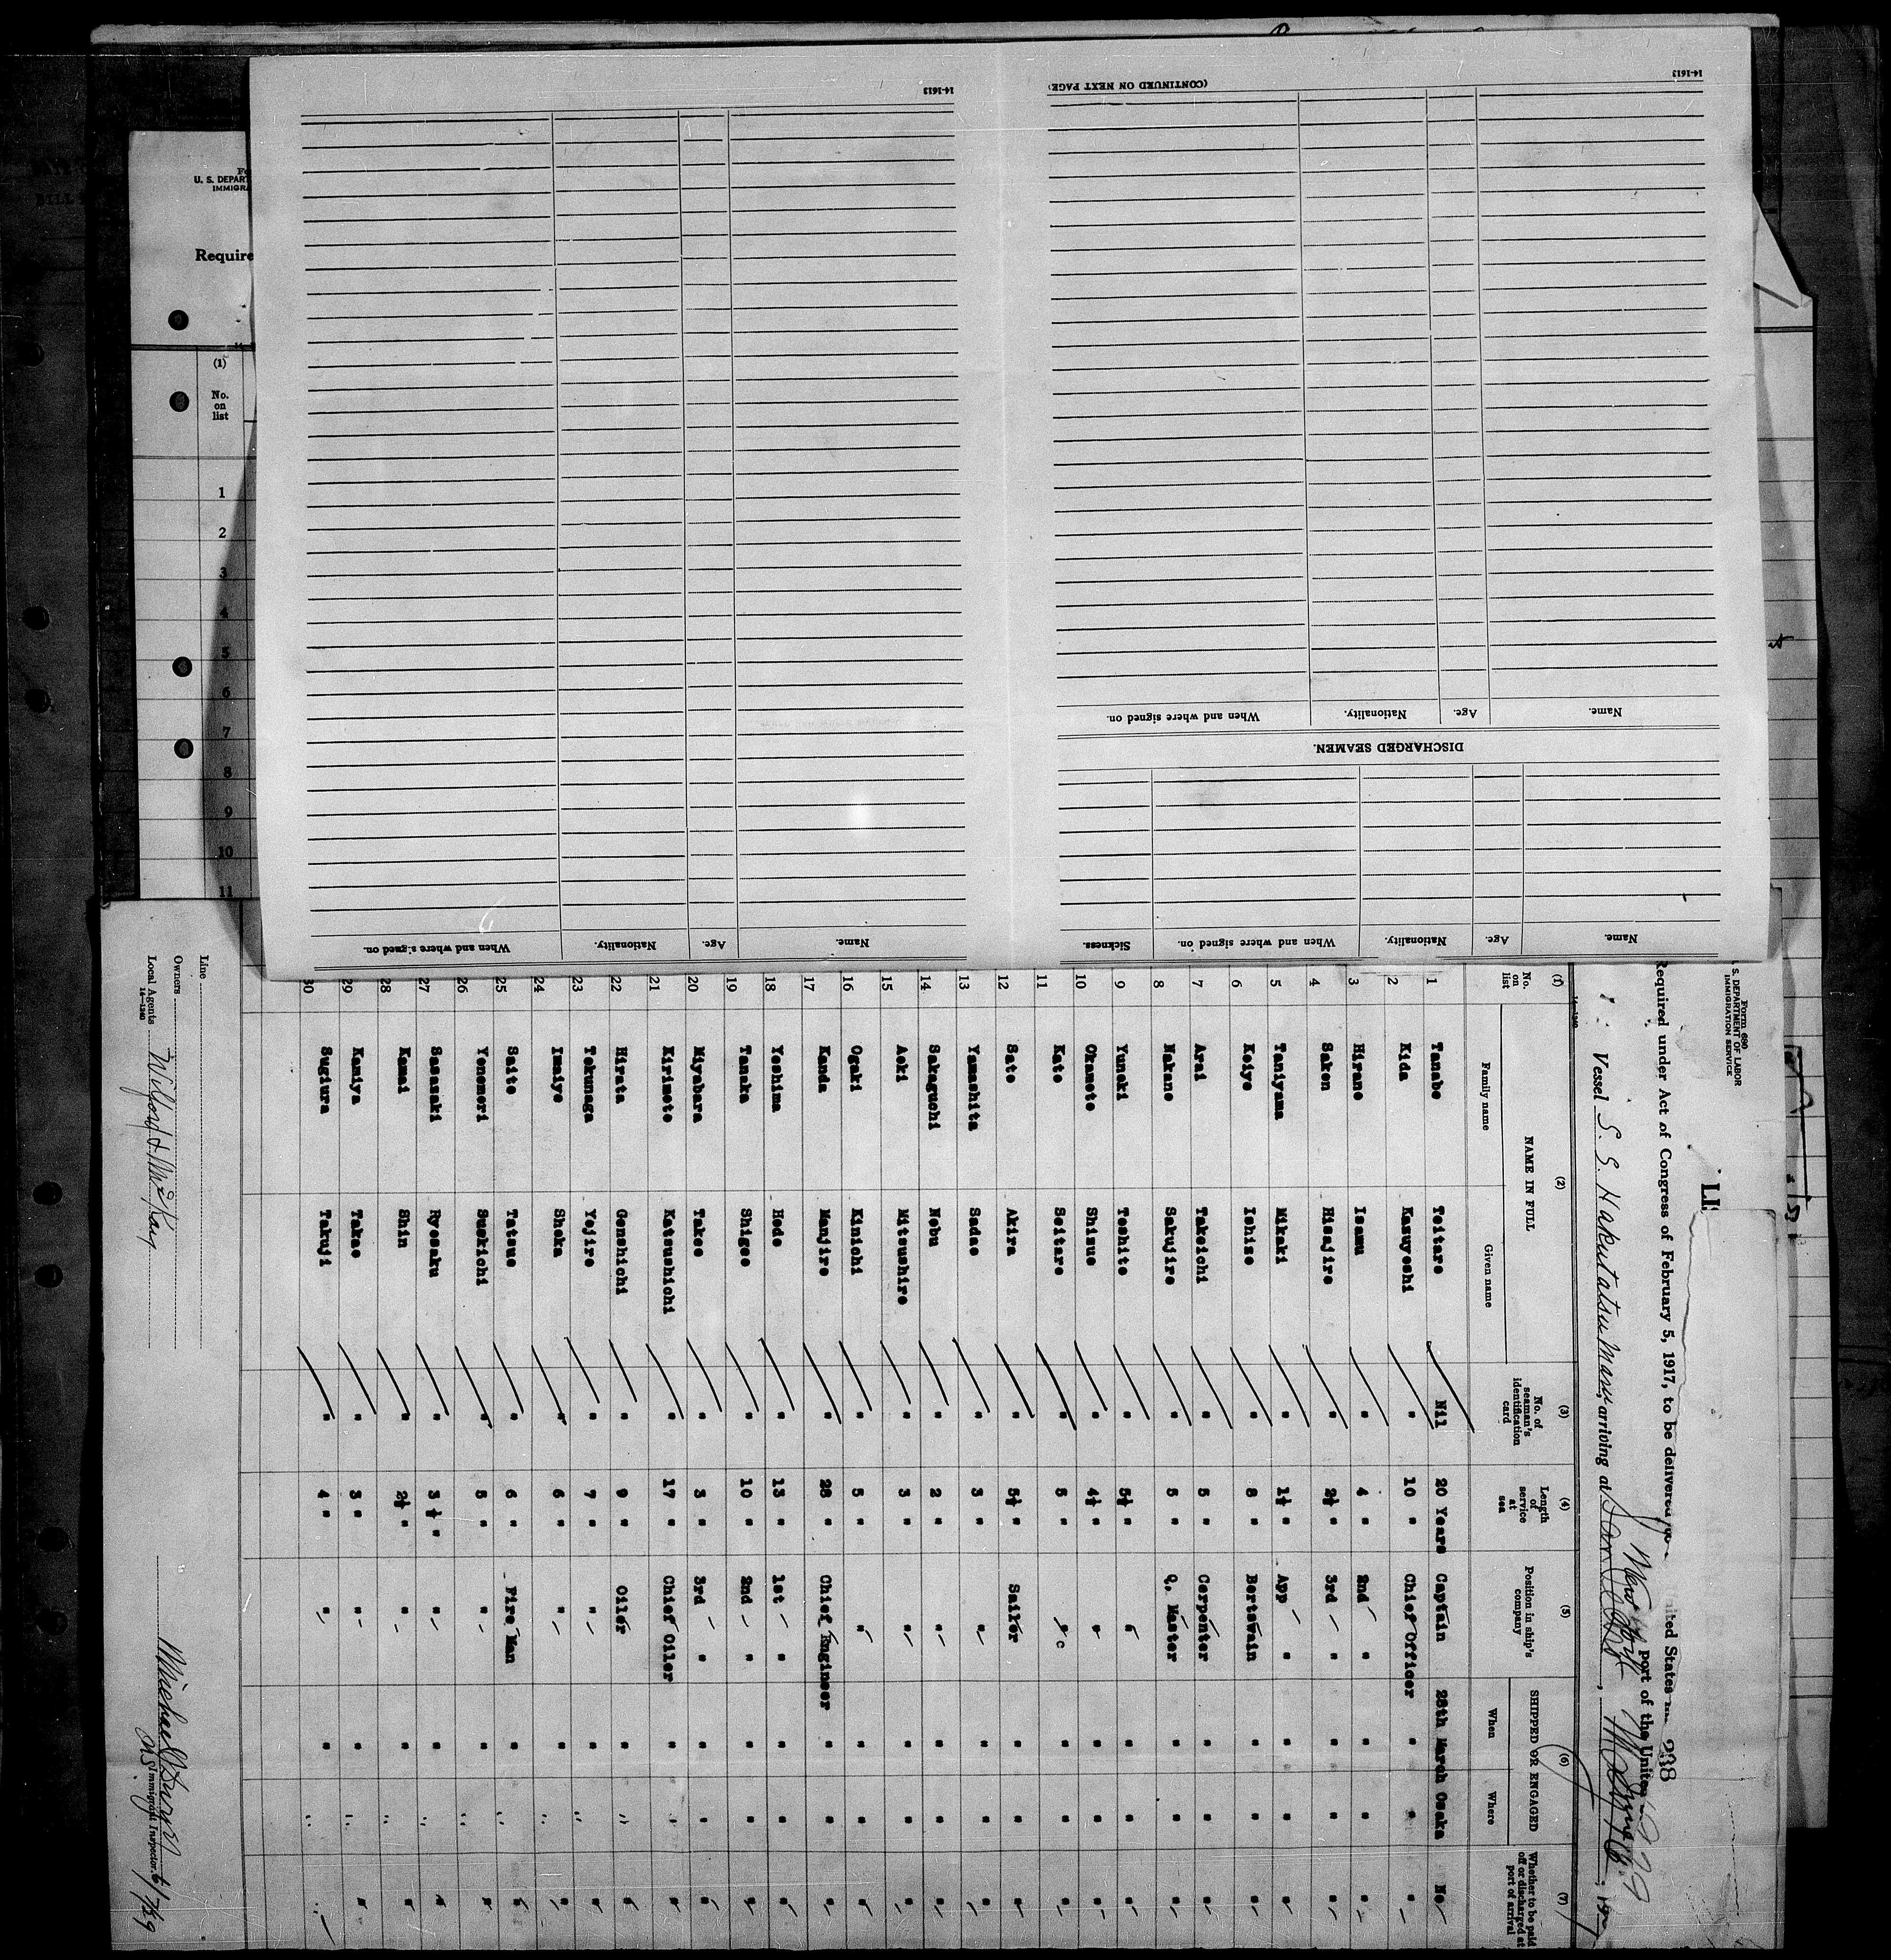 14-1613
When and where signed on.
Nationality.
Age.
Name.
(CONTINUED ON NEXT PAGE)
14-1613
Name.
Age.
Nationality.
When and where signed on.
DISCHARGED SEAMEN.
Name.
Age.
Nationality.
When and where signed on.
Sickness.
U. S. DEPART
IMMIGRA
Require
(1)
No.
on
list
1
2
3
4
5
6
7
8
9
10
11
Form 680
S. DEPARTMENT OF LABOR
IMMIGRATION SERVICE
LI
Required under Act of Congress of February 5, 1917, to be delivered
ited States
238
New York
port of the United
Vessel S. S. Hakutatsu Maru, arriving at
14-1240
(1) No. on list
(2) NAME IN FULL
Family name Given name
(3) No of seaman's identification card
(4) Length of service at sea
(5) Position in ship's company
(6) SHIPPED OR ENGAGED
When Where
(7) Whether to be paid off or discharged at port of arrival
1 Tanabe Teitaro Nil 20 Years Captain 28th March Osaka No
2 Kida Kasuyoshi " 10 " Chief Officer " " "
3 Hirano Isamu " 4 " 2nd " " " "
4 Saken Hisajiro " 2½ " 3rd " " " "
5 Taniyama Mikaki " 1½ " App " " " "
6 Koiye Ishizo " 8 " Bortswain " " "
7 Arai Takeichi " 5 " Cerpenter " " "
8 Nakano Sakujiro " 5 " Q. Master " " "
9 Yunoki Toshito " 5½ " " " " "
10 Okamoto Shizuo " 4½ " " " " "
11 Kato Seitaro " 5 " " c " " "
12 Sato Akira " 5½ " Sailor " " "
13 Yamashita Sadao " 3 " " " " "
14 Sakaguchi Nobu " 2 " " " " "
15 Aoki Mitsushiro " 3 " " " " "
16 Ogaki Kinichi " 5 " " " " "
17 Kanda Manjiro " 28 " Chief Engineer " " "
18 Yoshima Hodo " 13 " 1st " " " "
19 Tanaka Shigeo " 10 " 2nd " " " "
20 Miyabara Takeo " 3 " 3rd " " " "
21 Kirimoto Katsushichi " 17 " Chief Oiler " " "
22 Hirata Genshichi " 9 " Oiler " " "
23 Tokunaga Yojiro " 7 " " " " "
24 Imaiye Shoka " 6 " " " " "
25 Saito Tatsuo " 6 " Fire Man " " "
26 Yonemori Suekichi " 5 " " " " "
27 Sasasaki Ryosaku " 3½ " " " " "
28 Kamai Shin " 2½ " " " " "
29 Kamiya Takao " 3 " " " " "
30 Sugiura Takuji " 4 " " " " "
Line
Owners
Local Agents Wilford & McKay
14-1240
Immigrant Inspector.